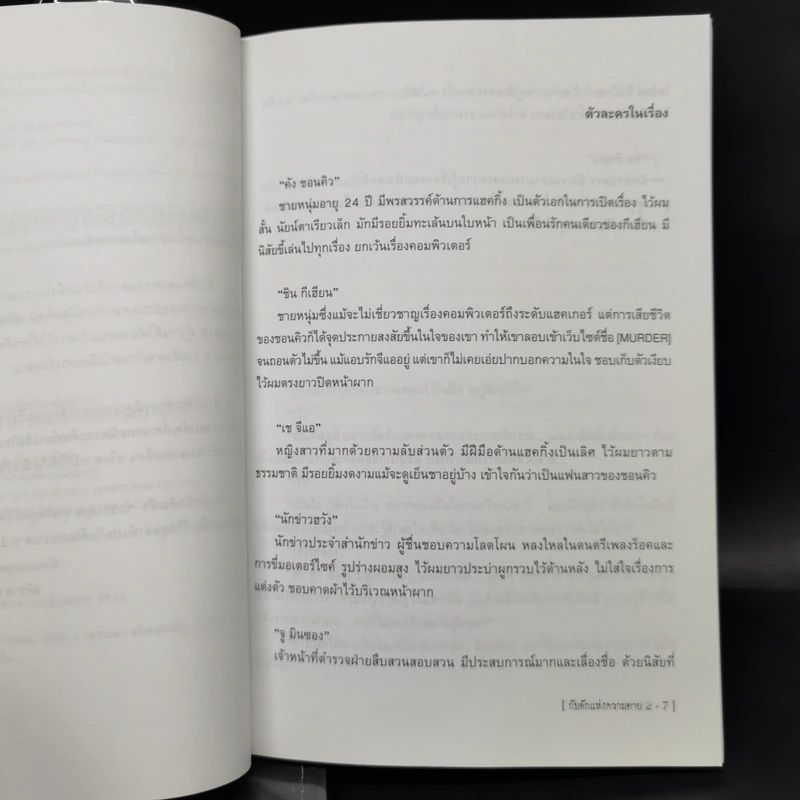 ตัวละครในเรื่อง
“คัง ซอนคิว”
ชายหนุ่มอายุ 24 ปี มีพรสวรรค์ด้านการแฮคกิ้ง เป็นตัวเอกในการเปิดเรื่อง ไว้ผม
สั้น นัยน์ตาเรียวเล็ก มักมีรอยยิ้มทะเล้นบนใบหน้า เป็นเพื่อนรักคนเดียวของกีเฮียน มี
นิสัยขี้เล่นไปทุกเรื่อง ยกเว้นเรื่องคอมพิวเตอร์
“ชิน กีเฮียน”
ชายหนุ่มซึ่งแม้จะไม่เชี่ยวชาญเรื่องคอมพิวเตอร์ถึงระดับแฮคเกอร์ แต่การเสียชีวิต
ของซอนคิวก็ได้จุดประกายสงสัยขึ้นในใจของเขา ทำให้เขาลอบเข้าเว็บไซต์ชื่อ [MURDER]
จนถอนตัวไม่ขึ้น แม้แอบรักจีแออยู่ แต่เขาก็ไม่เคยเอ่ยปากบอกความในใจ ชอบเก็บตัวเงียบ
ไว้ผมตรงยาวปิดหน้าผาก
“เช จีแอ”
หญิงสาวที่มากด้วยความลับส่วนตัว มีฝีมือด้านแฮคกิ้งเป็นเลิศ ไว้ผมยาวตาม
ธรรมชาติ มีรอยยิ้มงดงามแม้จะดูเย็นชาอยู่บ้าง เข้าใจกันว่าเป็นแฟนสาวของซอนคิว
“นักข่าวฮวัง”
นักข่าวประจำสำนักข่าว ผู้ชื่นชอบความโลดโผน หลงใหลในดนตรีเพลงร็อคและ
การขี่มอเตอร์ไซค์ รูปร่างผอมสูง ไว้ผมยาวประบ่าผูกรวบไว้ด้านหลัง ไม่ใส่ใจเรื่องการ
แต่งตัว ชอบคาดผ้าไว้บริเวณหน้าผาก
“จู มินซอง”
เจ้าหน้าที่ตำรวจฝ่ายสืบสวนสอบสวน มีประสบการณ์มากและเลื่องชื่อ ด้วยนิสัยที่
[ กับดักแห่งความตาย 2 • 7 ]